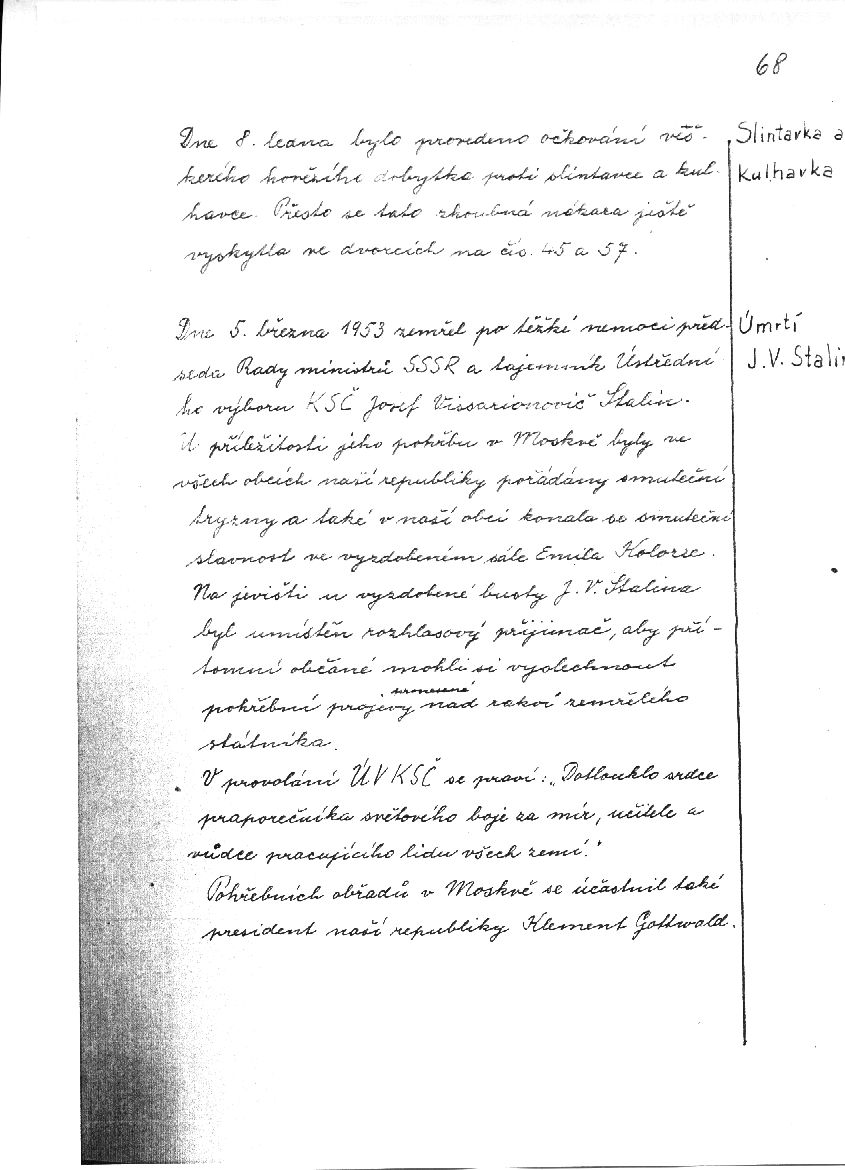 68
Dne 8. ledna bylo provedeno očkování veš-
kerého hovězího dobytka proti slintavce a kul-
havce. Přesto se tato zhoubná nákaza ještě
vyskytla ve dvorcích na čís. 45 a 57.
Slintavka a
Kulhavka
Dne 5. března 1953 zemřel po těžké nemoci před-
seda Rady ministrů SSSR a tajemník Ústřední
ho výboru KSČ Josef Vissarionovič Stalin.
U příležitosti jeho pohřbu v Moskvě byly ve
všech obcích naší republiky pořádány smuteční
tryzny a také v naší obci konala se smuteční
slavnost ve vyzdobeném sále Emila
Na jevišti u vyzdobené busty J. V. Stalina
byl umístěn rozhlasový přijimač, aby pří-
tomní občané mohli si vyslechnout
pohřební projevy pronesené nad rakví zemřelého
státníka.
V provolání ÚV KSČ se praví: „Dotlouklo srdce
praporečníka světového boje za mír, učitele a
vůdce pracujícího lidu všech zemí."
Pohřebních obřadů v Moskvě se účastnil také
president naší republiky Klement Gottwald.
Úmrtí
J.V. Stalin